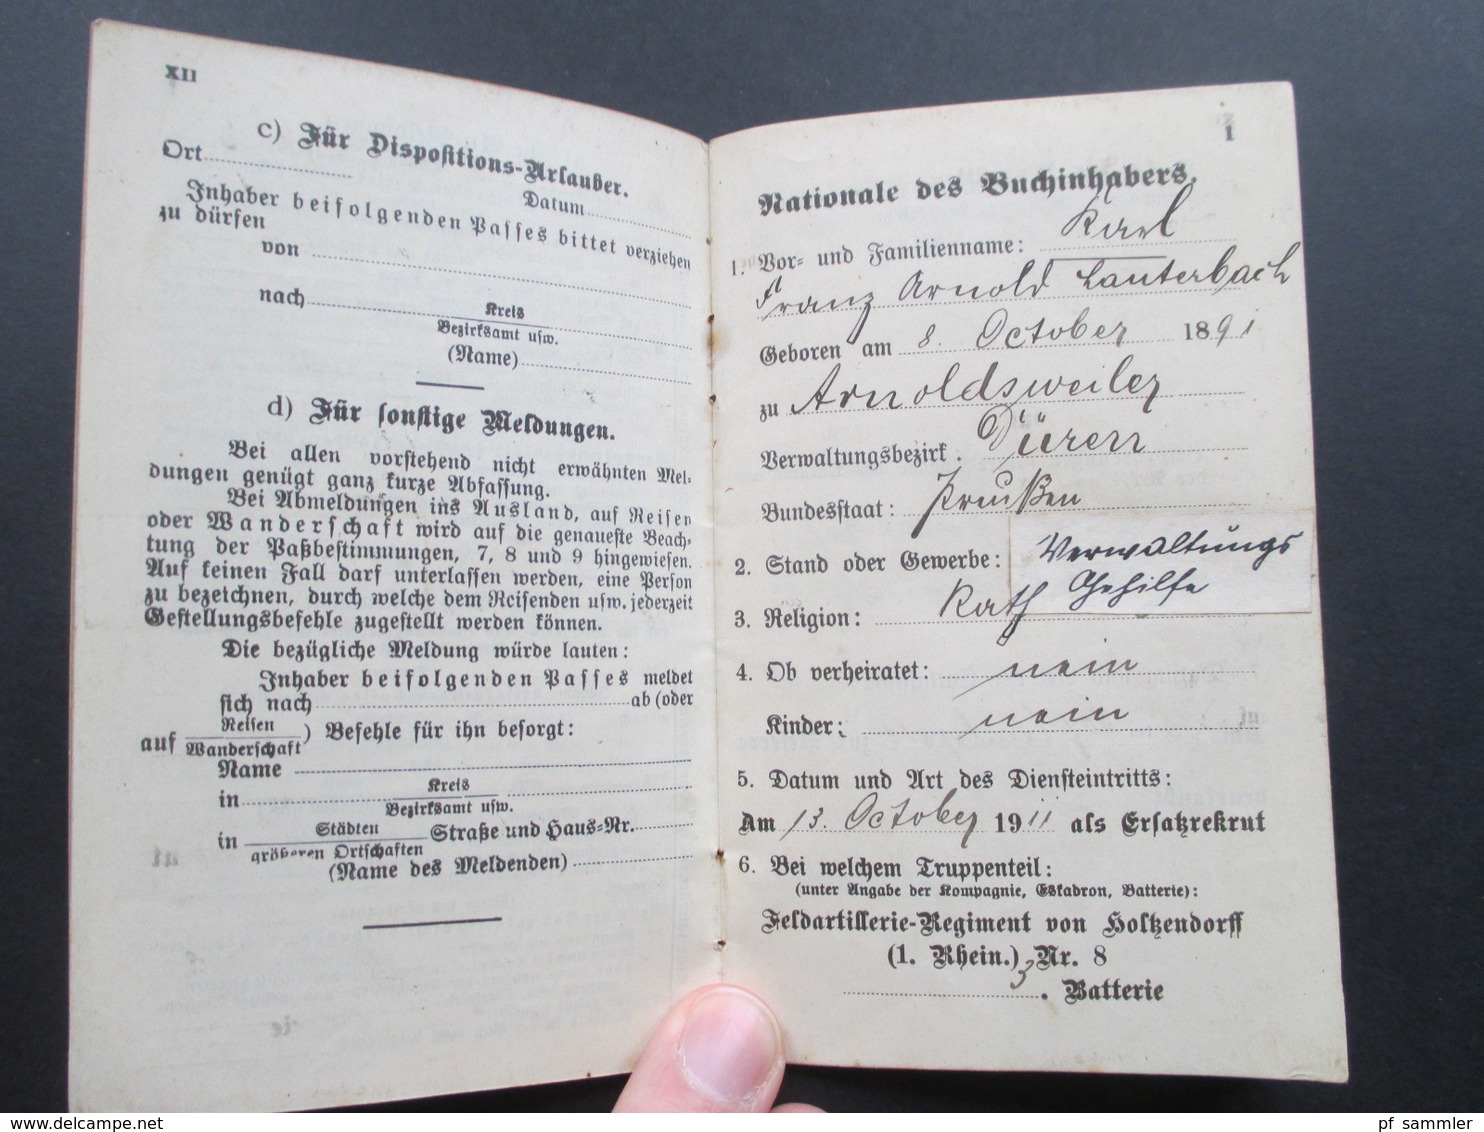 XII
c) Für Dispositions-Urlauber.
Ort
Datum
Inhaber beifolgenden Passes bittet verziehen
zu dürfen
von
nach
Kreis
Bezirksamt usw.
(Name)
d) Für sonstige Meldungen.
Bei allen vorstehend nicht erwähnten Mel-
dungen genügt ganz kurze Abfassung.
Bei Abmeldungen ins Ausland, auf Reisen
oder Wanderschaft wird auf die genaueste Beach-
tung der Paßbestimmungen, 7, 8 und 9 hingewiesen.
Auf keinen Fall darf unterlassen werden, eine Person
zu bezeichnen, durch welche dem Reisenden usw. jederzeit
Gestellungsbefehle zugestellt werden können.
Die bezügliche Meldung würde lauten:
Inhaber beifolgenden Passes meldet
sich nach ab (oder
auf Reisen
Wanderschaft ) Befehle für ihn besorgt:
Name
in Kreis
Bezirksamt usw.
in Städten
größeren Ortschaften Straße und Haus-Nr.
(Name des Meldenden)
1
Nationale des Buchinhabers.
1. Vor- und Familienname: Karl
Franz Arnold Lauterbach
Geboren am 8. October 1891
zu Arnoldsweiler
Verwaltungsbezirk. Düren
Bundesstaat: Preußen
2. Stand oder Gewerbe: Verwaltungs
Gehilfe
3. Religion: Kath
4. Ob verheiratet: nein
Kinder: nein
5. Datum und Art des Diensteintritts:
Am 13. October 1911 als Ersatzrekrut
6. Bei welchem Truppenteil:
(unter Angabe der Kompagnie, Eskadron, Batterie):
Feldartillerie-Regiment von Holtzendorff
(1. Rhein.) Nr. 8
3. Batterie
delcampe.net
pf_sammler